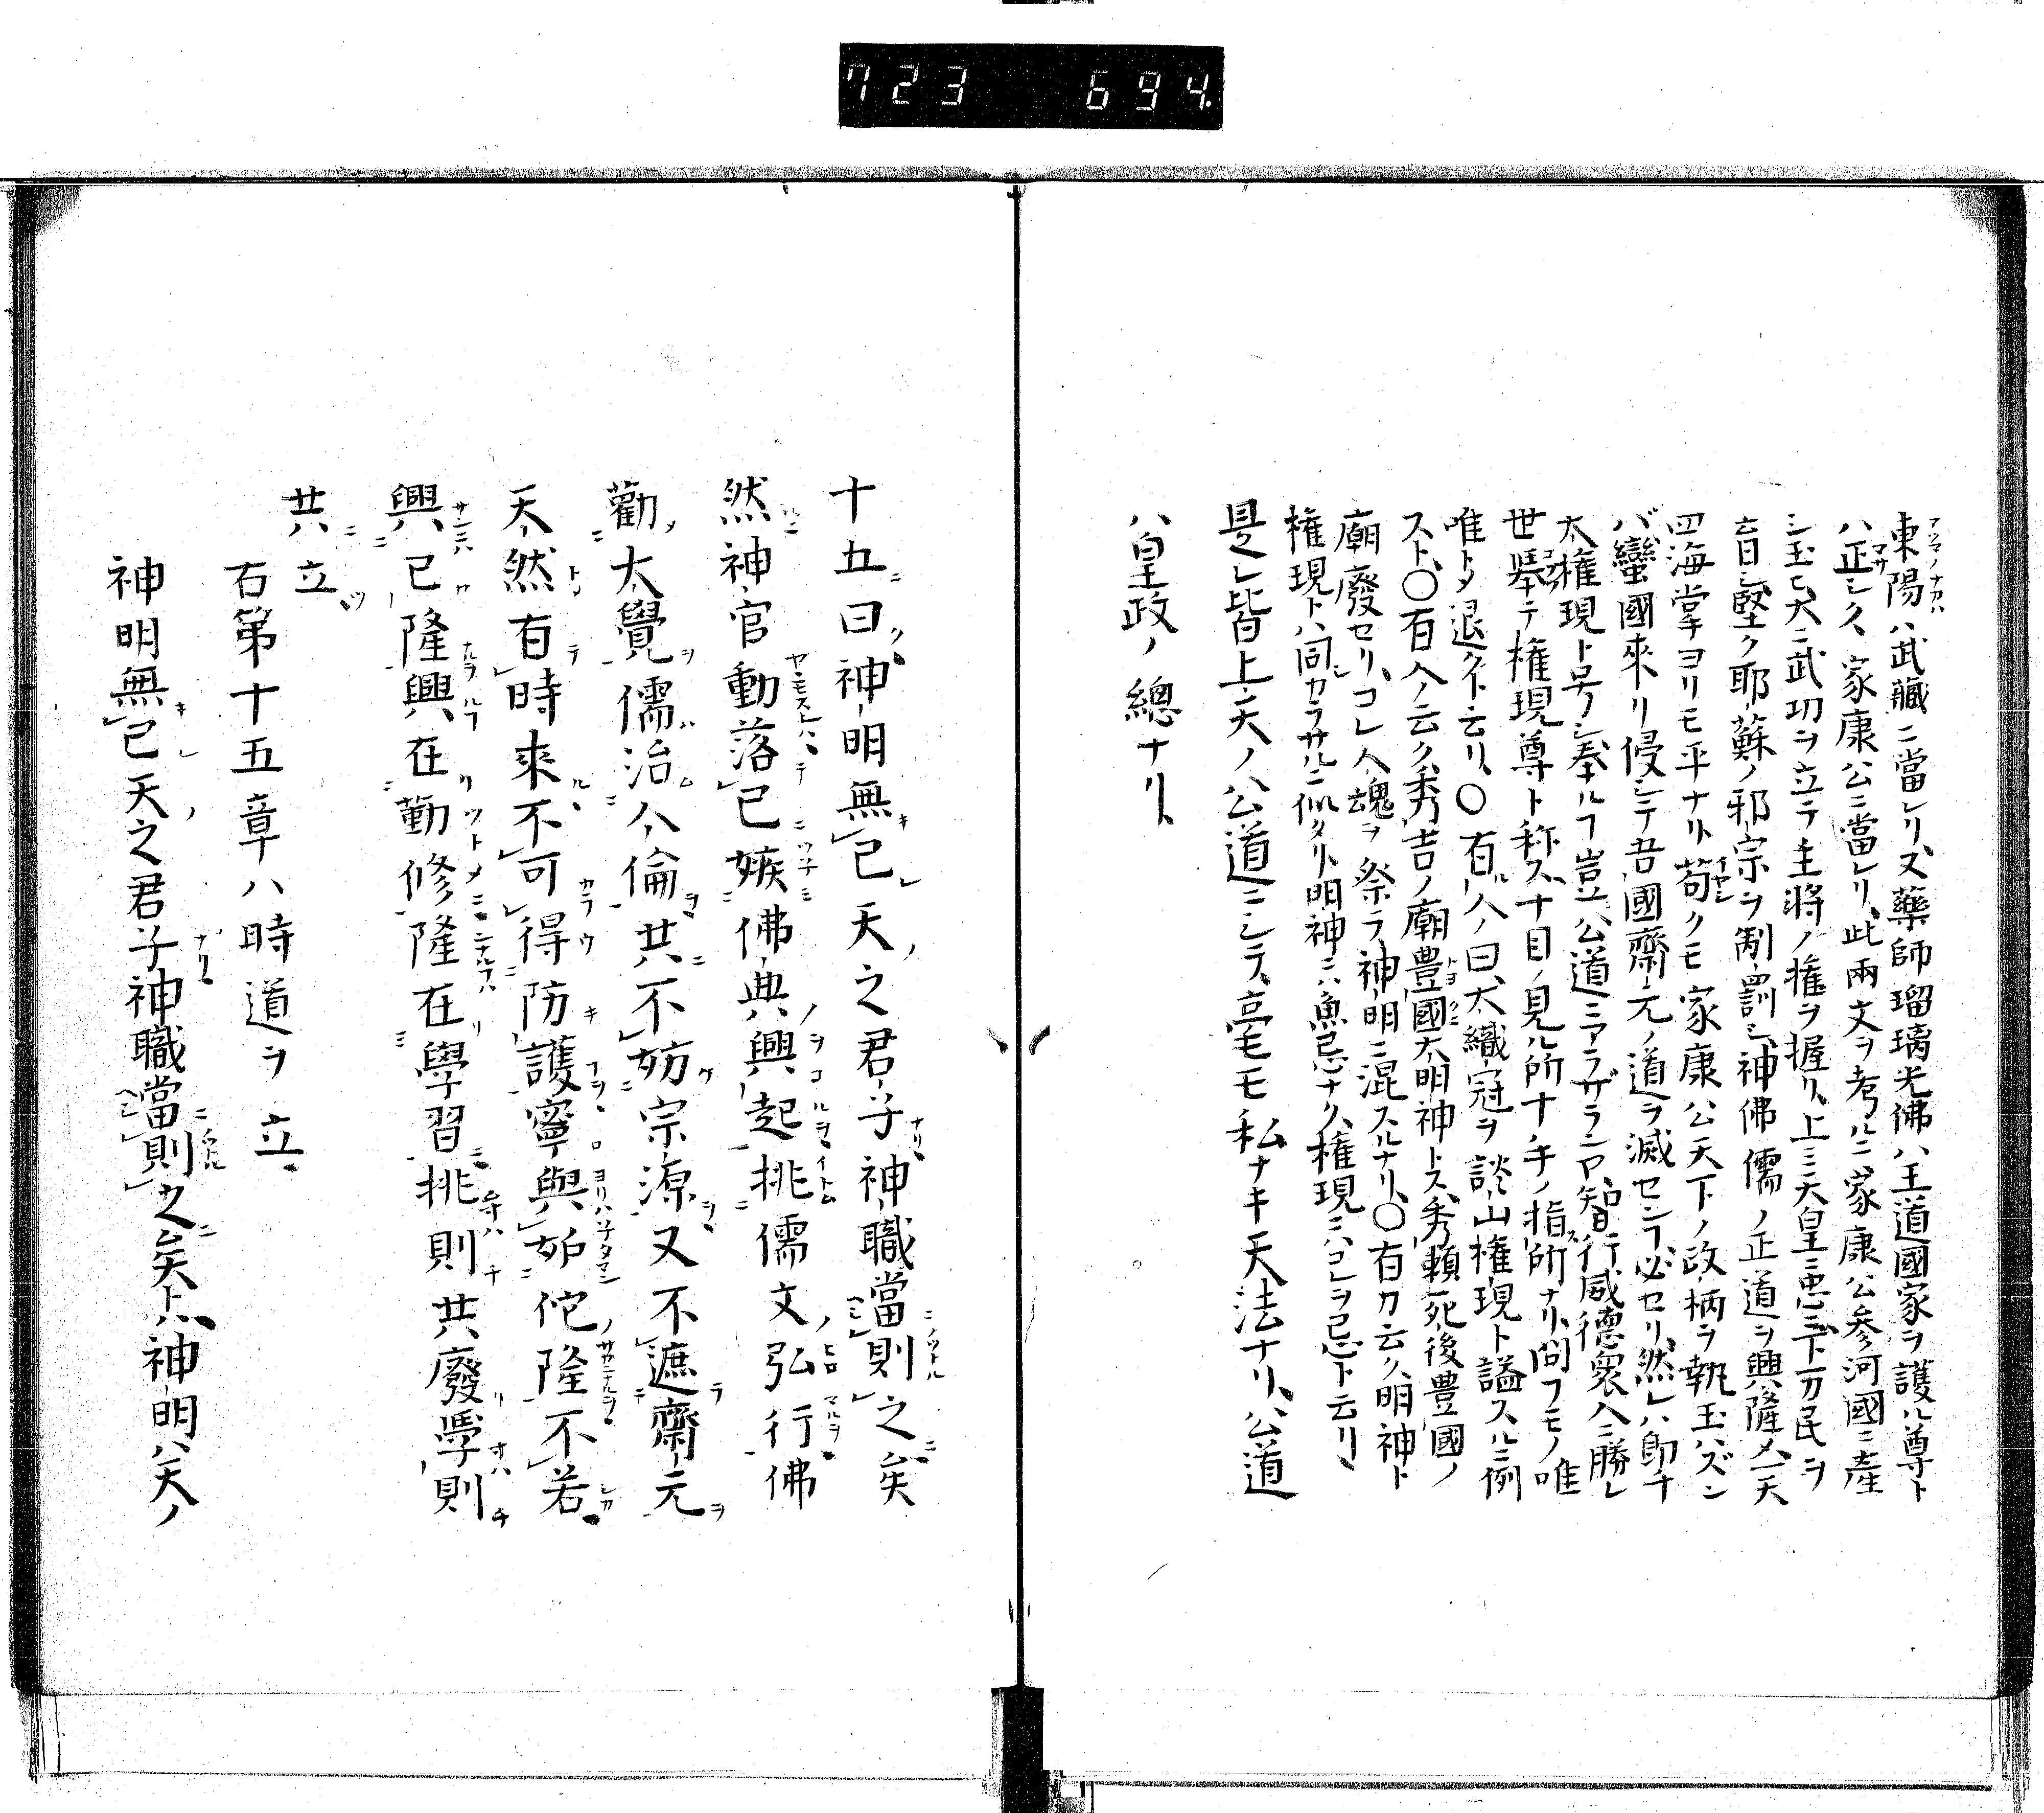 723 694.
東陽ハ武藏ニ當レリ、又藥師瑠璃光佛ハ王道國家ヲ護ル尊ト
ハ正シク、家康公ニ當レリ、此兩文ヲ考ルニ家康公参河國ニ産
シ玉ヒ、大ニ武功ヲ立テ主將ノ權ヲ握リ、上ミ天皇ニ忠シ、下万民ヲ
堅ク耶蘇ノ邪宗ヲ制罰シ、神佛儒ノ正道ヲ興隆メ、天
四海掌ヨリモ平ナリ、苟クモ家康公天下ノ政柄ヲ執玉ハズン
バ、蠻國來リ侵シテ吾國齋元ノ道ヲ滅セン丁必セリ、然レハ即チ
太權現ト号シ奉ル丁豈公道ニアラザランヤ、智行威德衆人ニ勝レ
世擧テ權現尊ト称ス、十目ノ見ル所十手ノ指所ナリ、問フモノ唯
唯トメ退クト云リ、〇有ル人ノ曰、大織冠ヲ談山權現ト謚スルニ例
スト、〇有人ノ云ク、秀吉ノ廟豊國大明神トス、秀頼死後豊國ノ
廟廢セリ、コレ人魂ヲ祭ラ、神明ニ混スルナリ、〇有カ云ク、明神ト
権現トハ同カラサルニ似タリ、明神ニハ魚忌ナク、権現ニハコレヲ忌ト云リ、
是レ皆上天ノ公道ニシテ、毫モ私ナキ天法ナリ、公道
ハ皇政ノ總ナリ、
十五曰神明無已天之君子神職當則之矣
然神官動落已嫉佛典興起挑儒文弘行佛
勸大覺儒治人倫共不妨宗源又不遮齋元
天然有時來不可得防護寧與妒佗隆不若
興已隆興在勤修隆在學習挑則共廢學則
共立
右第十五章ハ時道ヲ立
神明無已天之君子神職當則之矣トハ神明ハ天ノ